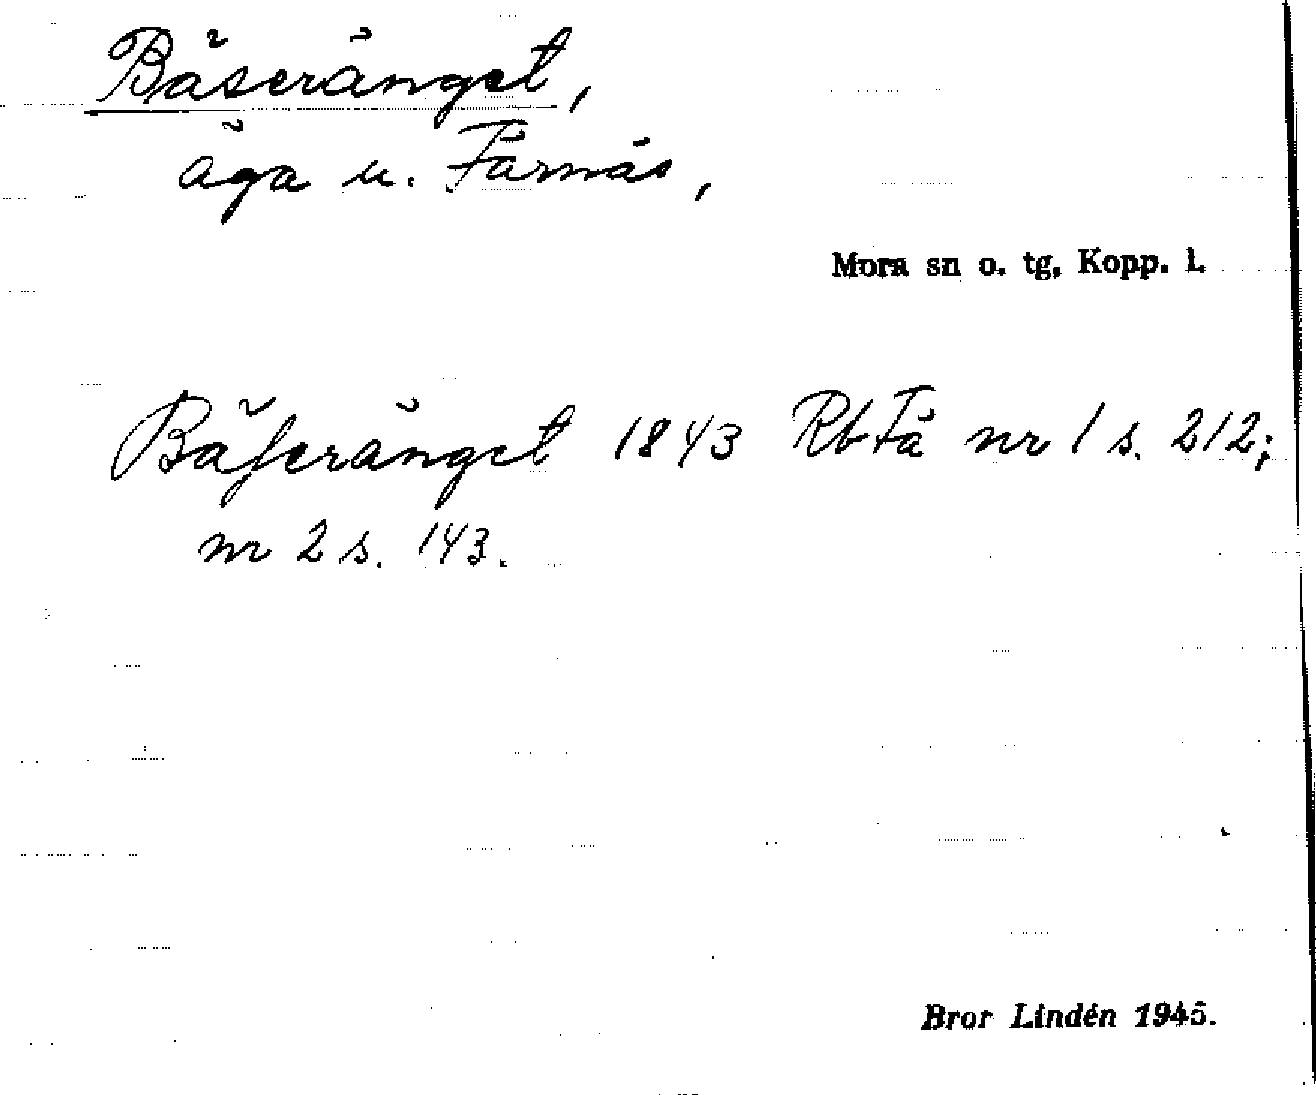 Bäseränget,
äga u. Färnäs,
Mora sn o. tg, Kopp. l.
Bäſeränget 1843 RbFä nr 1 s. 212;
nr 2 s. 143.
Bror Lindén 1945.